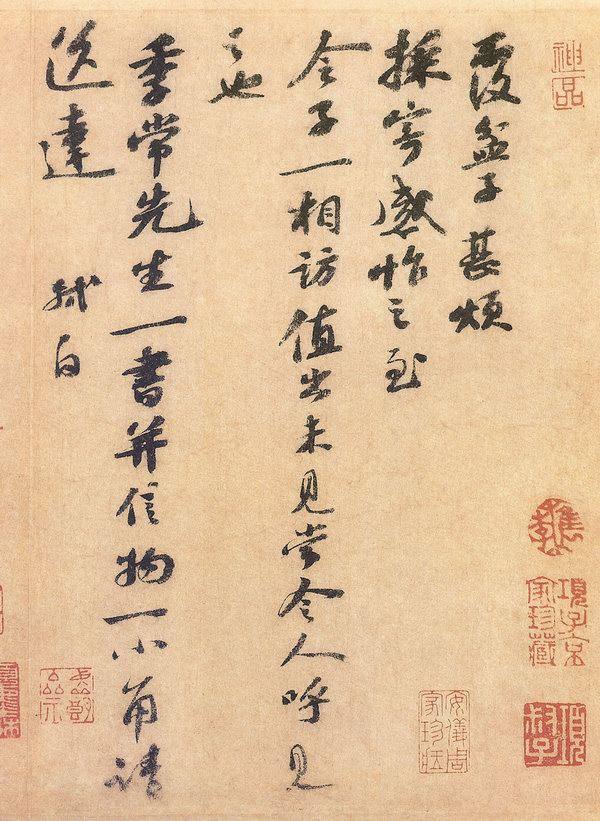 神品
覆盆子甚煩
採寄感怍之至
令子一相訪值出未見當令人呼見
之也
季常先生一書并信物一小角請
送達
軾白
檇李
項子京家珍藏
項叔子
安儀周家珍藏